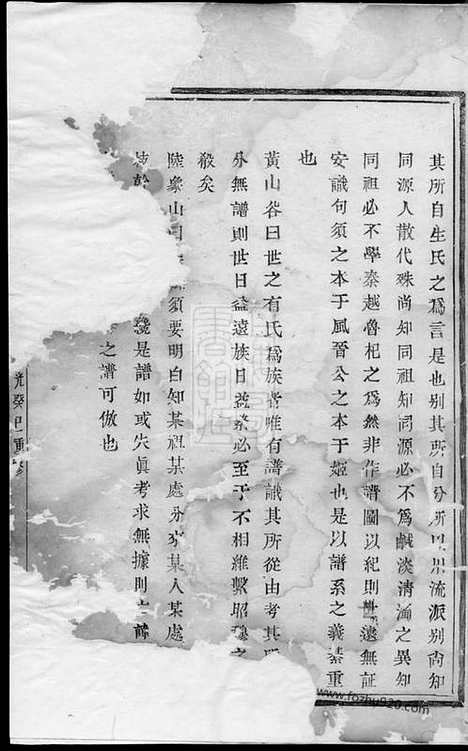 其所自生氏之為言是也别其所自分所以川流派别尚知
同源人散代殊尚知同祖知同源必不為鹹淡清濁之異知
同祖必不學秦越魯杞之為然非作譜圖以紀則世遠無証
安識句須之本于風晉公之本于姬也是以譜系之義綦重
也
黃山谷曰世之有氏為族者唯有譜識其所從由考其
分無譜則世日益遠族日益衆必至于不相維繫昭穆之
殺矣
陸象山曰須要明白知某祖某處分來某人某處
枝幹是譜如或失眞考求無據則
之譜可倣也
光癸巳重修
www.fozhu920.com